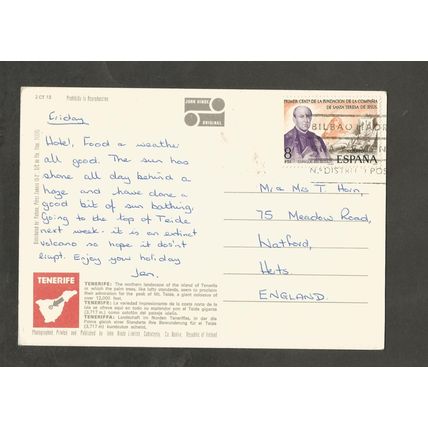 2 CT 13
Prohibida la Reproducción
JOHN HINDE
ORIGINAL
Friday
Hotel, Food & weather
all good. The sun has
shone all day behind a
haze and have done a
good bit of sun bathing.
Going to the top of Teide
next week - it is an extinct
volcano so hope it dosin't
erupt. Enjoy your holiday
Jen.
PRIMER CENT.º DE LA FUNDACION DE LA COMPAÑIA
DE SANTA TERESA DE JESUS
8
PTAS
ESPAÑA
BILBAO
Mr & Mrs T. Horn,
75 Meadow Road,
Watford,
Hets.
ENGLAND.
TENERIFE
TENERIFE: The northern landscape of the island of Tenerife
in which the palm trees, like lofty standards, seem to proclaim
their admiration for the peak of Mt. Teide, a giant colossus of
over 12,000 feet.
TENERIFE: La variedad impresionante de la costa norte de la
isla se ofrece aquí en todo su esplendor con el Teide gigante
(3,717 m.) como colofón del paisaje isleño.
TENERIFFA: Landschaft im Norden Teneriffas, in der die
Palmen gleich einer Standarte ihre Bewunderung für el Teide
(3,717 m) kundzutun scheint.
Photographed Printed and Published by John Hinde Limited, Cabinteely, Co. Dublin, Republic of Ireland